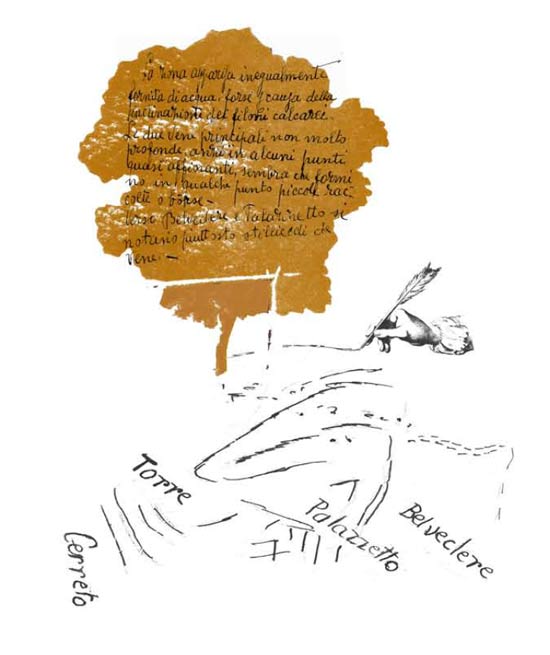 La zona apparisa inegualmente
fornita di acqua, forse p causa della
inclinazione dei filoni calcarei.
Le due vene principali non molto
profonde, anzi in alcuni punti
quasi affioranti, sembra che formi
no in qualche punto piccole rac-
colte o borse -
verso Belvedere e Palazzetto si
notano piuttosto stillicidi che
vene. -
Torre
Cerreto
Palazzetto
Belvedere